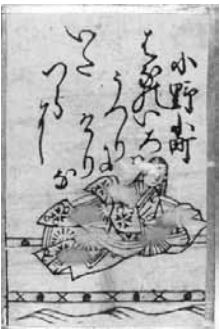 小野小町
はなのいろは
うつりに
けりな
いた
つらに